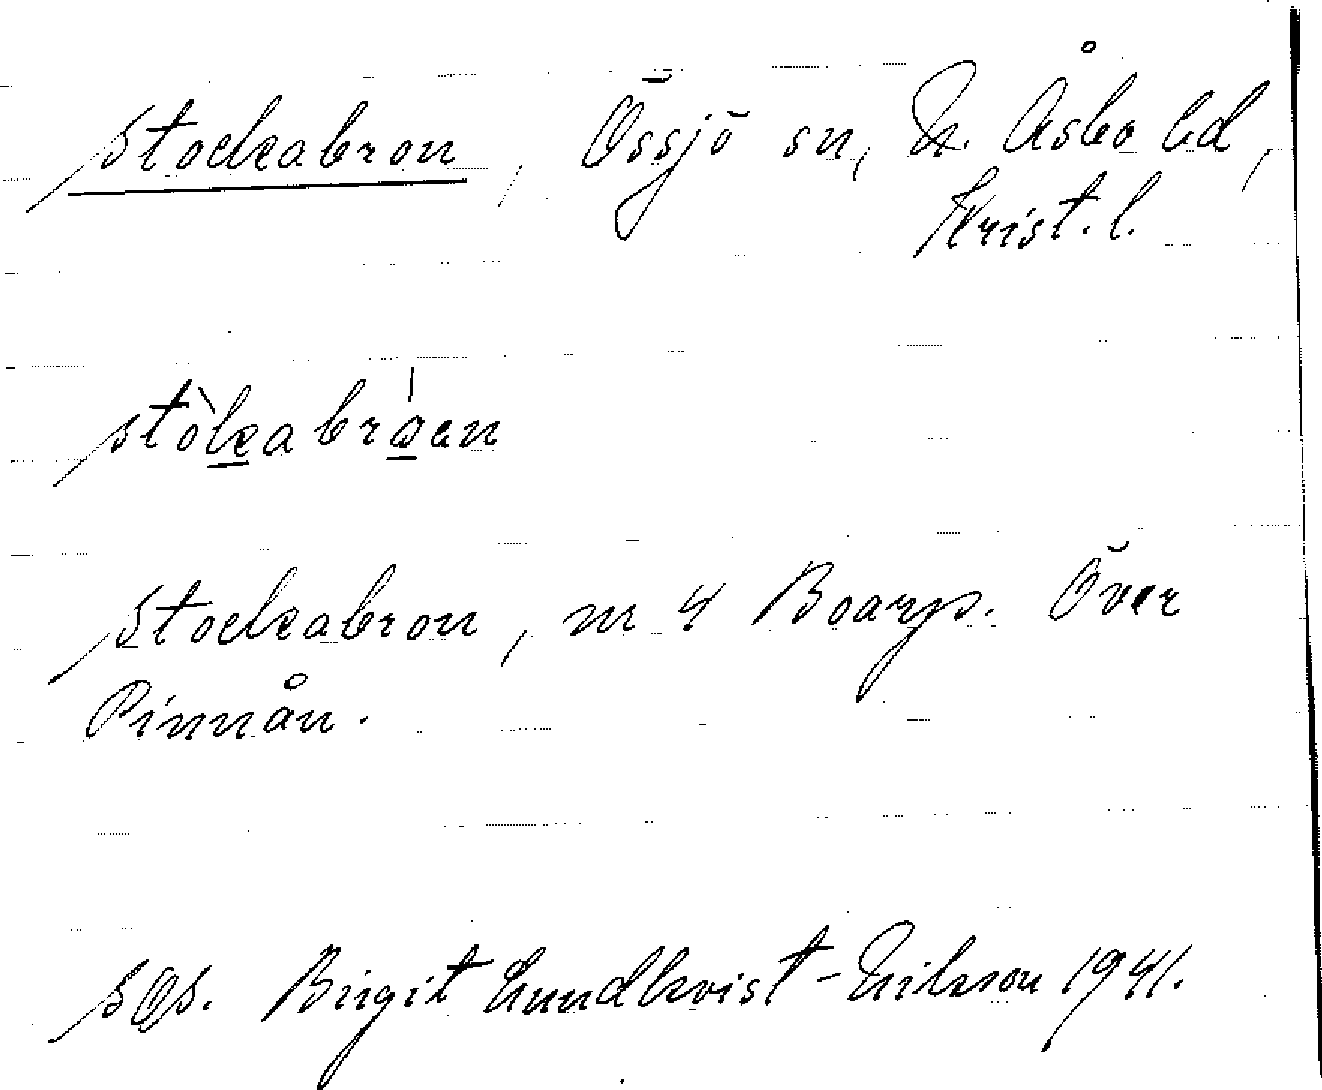 Stockabron, Össjö sn, N. Åsbo hd,
Krist. l.
stòkabråen
Stockabron, nr 4 Boarp. Över
Pinnån.
Birgit Lundkvist-Nilsson 1941.